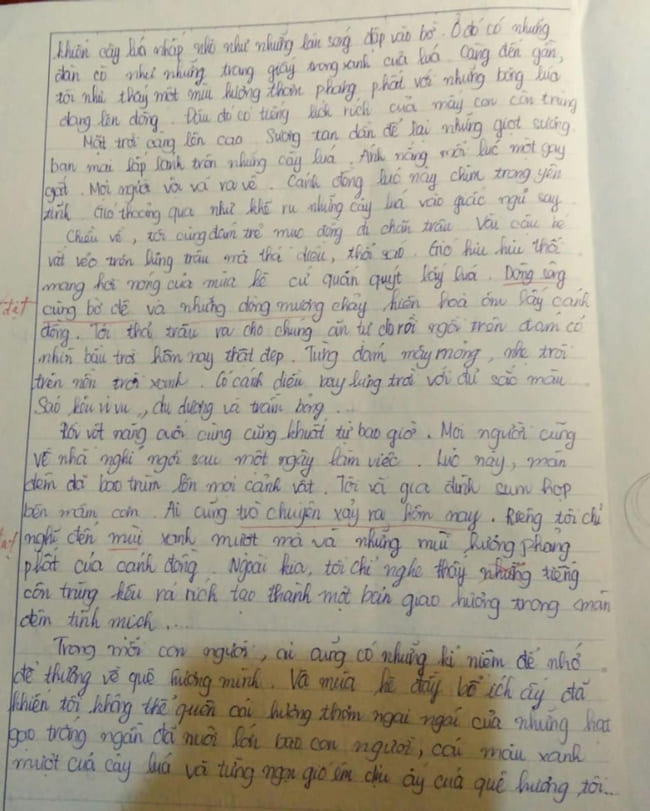 khiến cây lúa nhấp nhô như những làn sóng đập vào bờ. Ở đó có những
đàn cò như những trang giấy trong xanh của lúa. Càng đến gần,
tôi như thấy một mùi hương thơm phang phất với những bông lúa
đang lên đòng. Đâu đó có tiếng kích rích của mấy con côn trùng
Mặt trời càng lên cao. Sương tan dần để lại những giọt sương
ban mai lấp lánh trên những cây lúa. Ánh nắng mỗi lúc một gay
gắt. Mọi người vội vã ra về. Cánh đồng lúc này chìm trong yên
tĩnh. Gió thoảng qua như khẽ ru những cây lúa vào giấc ngủ say.
Chiều về, tôi cùng đám trẻ mục đồng đi chăn trâu. Vài cậu bé
vắt vẻo trên lưng trâu mà thả diều, thổi sáo. Gió hiu hiu thổi
mang hơi nóng của mùa hè cứ quấn quýt lấy lúa. Dòng sông
đặt cùng bờ đê và những dòng mương chảy hiền hoà ôm lấy cánh
đồng. Tôi thả trâu ra cho chúng ăn tự do rồi ngồi trên đám cỏ
nhìn bầu trời hôm nay thật đẹp. Từng đám mây mỏng, nhẹ trôi
trên nền trời xanh. Có cánh diều bay lưng trời với đủ sắc màu.
Sáo kêu vi vu, du dương và trầm bổng...
Rồi vệt nắng cuối cùng cũng khuất tự bao giờ. Mọi người cũng
về nhà nghỉ ngơi sau một ngày làm việc. Lúc này, màn
đêm đã bao trùm lên mọi cảnh vật. Tôi và gia đình sum họp
bên mâm cơm. Ai cũng trò chuyện xảy ra hôm nay. Riêng tôi chỉ
nghĩ đến mùi xanh mướt mà và những mùi hương phang
phất của cánh đồng. Ngoài kia, tôi chỉ nghe thấy những tiếng
côn trùng kêu rả rích tạo thành một bản giao hưởng trong màn
đêm tĩnh mịch.....
Trong mỗi con người, ai cũng có những kỉ niệm để nhớ
để thương về quê hương mình. Và mùa hè đầy bổ ích ấy đã
khiến tôi không thể quên cái hương thơm ngai ngái của những hạt
gạo trắng ngần đã nuôi lớn bao con người, cái màu xanh
mướt của cây lúa và từng ngọn gió êm dịu ấy của quê hương tôi...